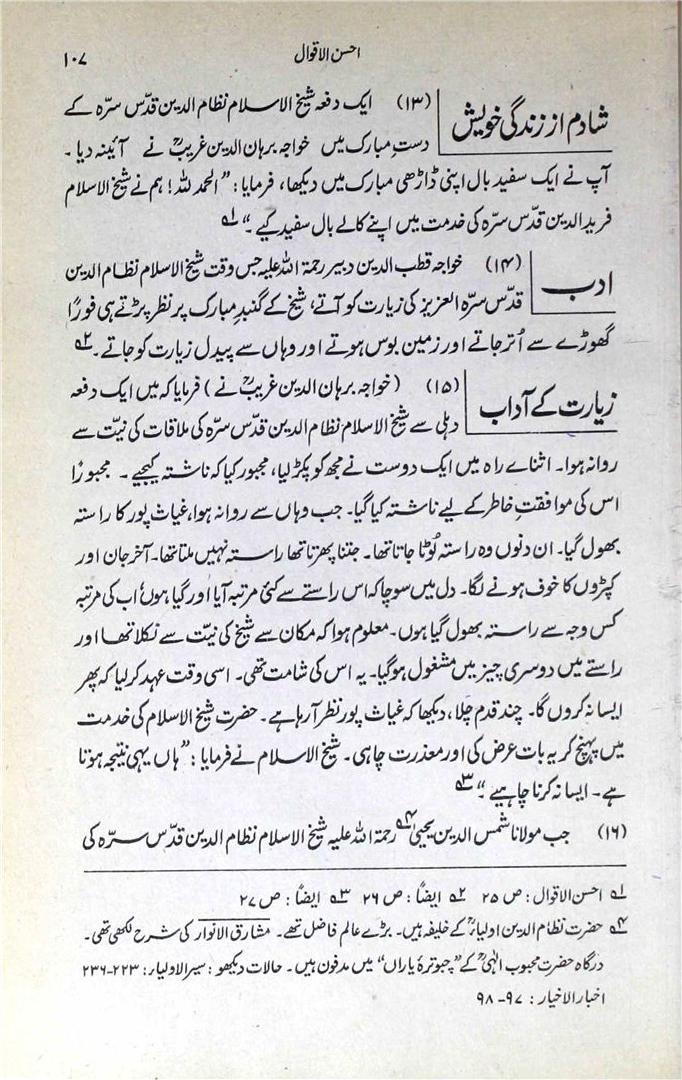 احسن الاقوال ۱۰۷
شادم از زندگی خویش
(۱۳) ایک دفعہ شیخ الاسلام نظام الدین قدّس سرّہ کے
دستِ مبارک میں خواجہ برہان الدین غریبؒ نے آئینہ دیا ۔
آپ نے ایک سفید بال اپنی ڈاڑھی مبارک میں دیکھا، فرمایا: ”الحمد للہ! ہم نے شیخ الاسلام
فرید الدین قدّس سرّہ کی خدمت میں اپنے کالے بال سفید کیے ۔“ ۱ھ
ادب
(۱۴) خواجہ قطب الدین دبیر رحمۃ اللہ علیہ جس وقت شیخ الاسلام نظام الدین
قدّس سرّہ العزیز کی زیارت کو آتے، شیخ کے گنبدِ مبارک پر نظر پڑتے ہی فورًا
گھوڑے سے اُتر جاتے اور زمین بوس ہوتے اور وہاں سے پیدل زیارت کو جاتے ۔ ۲ھ
زیارت کے آداب
(۱۵) (خواجہ برہان الدین غریبؒ نے) فرمایا کہ میں ایک دفعہ
دہلی سے شیخ الاسلام نظام الدین قدّس سرّہ کی ملاقات کی نیّت سے
روانہ ہوا۔ اثناے راہ میں ایک دوست نے مجھ کو پکڑ لیا، مجبور کیا کہ ناشتہ کیجیے ۔ مجبورًا
اس کی موافقتِ خاطر کے لیے ناشتہ کیا گیا۔ جب وہاں سے روانہ ہوا، غیاث پور کا راستہ
بھول گیا۔ ان دنوں وہ راستہ لُوٹا جاتا تھا۔ جتنا پھرتا تھا راستہ نہیں ملتا تھا۔ آخر جان اور
کپڑوں کا خوف ہونے لگا۔ دل میں سوچا کہ اس راستے سے کئی مرتبہ آیا اور گیا ہوں، اب کی مرتبہ
کس وجہ سے راستہ بھول گیا ہوں۔ معلوم ہوا کہ مکان سے شیخ کی نیّت سے نکلا تھا اور
راستے میں دوسری چیز میں مشغول ہو گیا۔ یہ اس کی شامت تھی۔ اسی وقت عہد کر لیا کہ پھر
ایسا نہ کروں گا۔ چند قدم چلا، دیکھا کہ غیاث پور نظر آ رہا ہے۔ حضرت شیخ الاسلام کی خدمت
میں پہنچ کر یہ بات عرض کی اور معذرت چاہی۔ شیخ الاسلام نے فرمایا: ”ہاں یہی نتیجہ ہوتا
ہے۔ ایسا نہ کرنا چاہیے ۔“ ۳ھ
(۱۶) جب مولانا شمس الدین یحییٰ ۴ھ رحمۃ اللہ علیہ شیخ الاسلام نظام الدین قدّس سرّہ کی
۱ھ احسن الاقوال: ص ۲۵ ۲ھ ایضًا: ص ۲۶ ۳ھ ایضًا: ص ۲۷
۴ھ حضرت نظام الدین اولیاءؒ کے خلیفہ ہیں۔ بڑے عالم فاضل تھے۔ مشارق الانوار کی شرح لکھی تھی۔
درگاہ حضرت محبوب الٰہیؒ کے ”چبوترۂ یاراں“ میں مدفون ہیں۔ حالات دیکھو: سیر الاولیاء: ۲۲۳-۲۳۶
اخبار الاخیار: ۹۷-۹۸